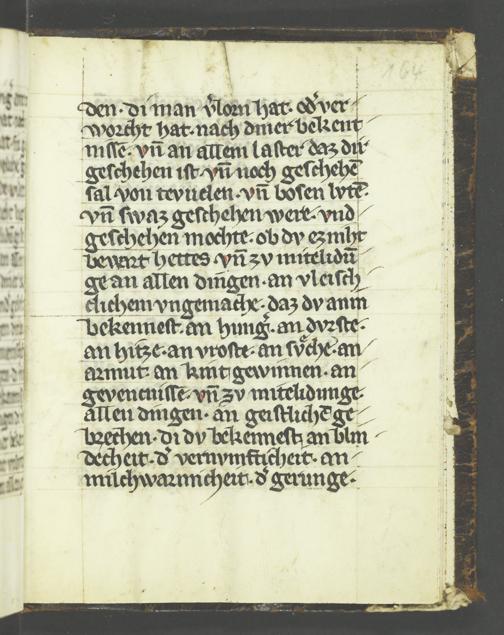 164
den · di man v̉lorn hat · od̉ ver
worcht hat · nach diner bekent
nisse · vn̄ an allem laster daz dir
geschehen ist · vn̄ noch geschehē
sal von tevuelen · vn̄ bosen lvtē ·
vn̄ swaz geschehen were · vnd
geschehen mochte · ob dv ez niht
bewart hettes · vn̄ zv mitelidū
ge an allen dingen · an vleisch
clichem vngemache · daz dv an in
bekennest · an hung̉ · an dvrste ·
an hitze · an vroste · an sv̊che · an
armut · an kint gewinnen · an
gevencnisse · vn̄ zv mitelidunge
allen dingen · an geistlichē ge
brechen · di dv bekennest · an blin
decheit · d̉ vernvmfticheit · an
milchwarmcheit · d̉ gerunge ·